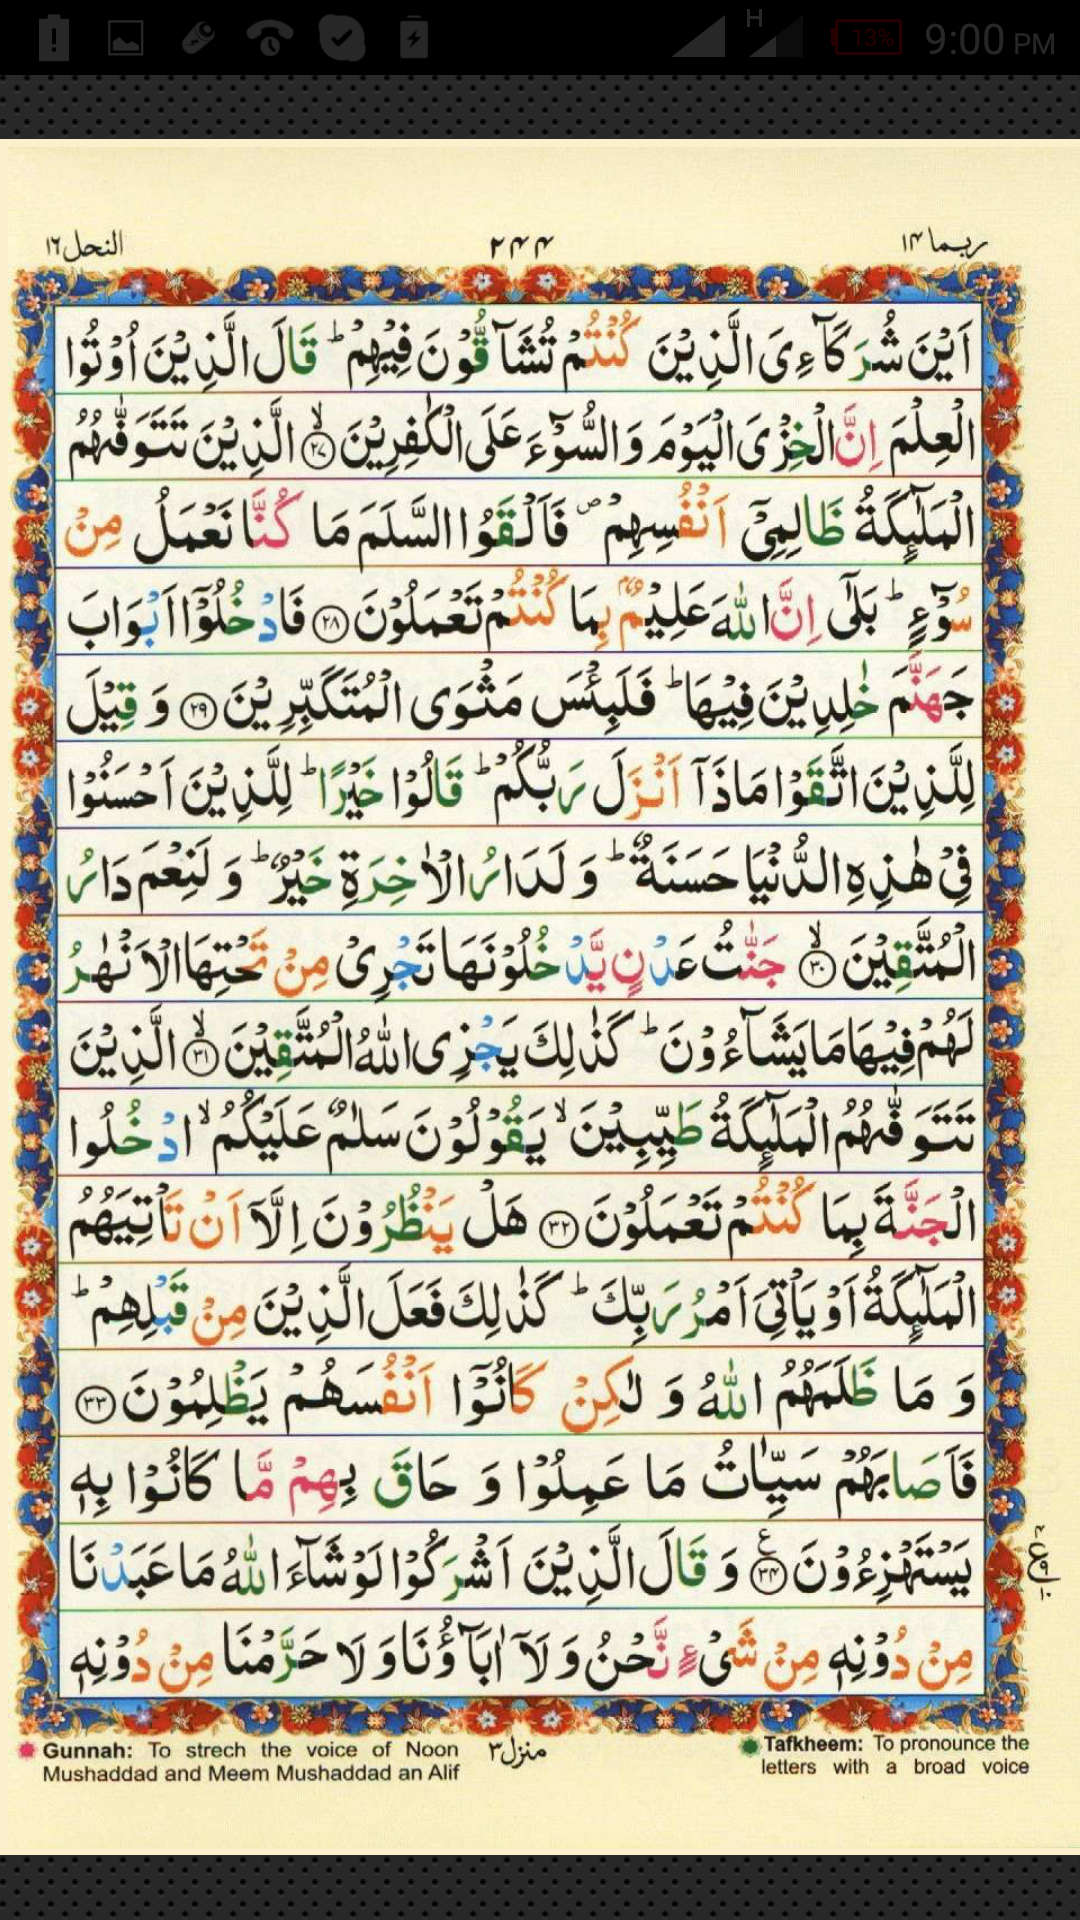 H 13% 9:00 PM
النحل ١٦ ٢٤٤ ربما ١٤
اَيْنَ شُرَكَآءِىَ الَّذِيْنَ كُنْتُمْ تُشَآقُّوْنَ فِيْهِمْ ؕ قَالَ الَّذِيْنَ اُوْتُوا
الْعِلْمَ اِنَّ الْخِزْىَ الْيَوْمَ وَالسُّوْٓءَ عَلَى الْكٰفِرِيْنَ ۙ‏﴿۲۷﴾ الَّذِيْنَ تَتَوَفّٰٮهُمُ
الْمَلٰٓٮِٕكَةُ ظَالِمِىْٓ اَنْفُسِهِمْ ۖ فَاَلْقَوُا السَّلَمَ مَا كُنَّا نَعْمَلُ مِنْ
سُوْٓءٍ ؕ بَلٰٓى اِنَّ اللّٰهَ عَلِيْمٌۢ بِمَا كُنْتُمْ تَعْمَلُوْنَ ﴿۲۸﴾ فَادْخُلُوْۤا اَبْوَابَ
جَهَنَّمَ خٰلِدِيْنَ فِيْهَا ؕ فَلَبِئْسَ مَثْوَى الْمُتَكَبِّرِيْنَ ﴿۲۹﴾ وَ قِيْلَ
لِلَّذِيْنَ اتَّقَوْا مَاذَاۤ اَنْزَلَ رَبُّكُمْ ؕ قَالُوْا خَيْرًا ؕ لِلَّذِيْنَ اَحْسَنُوْا
فِىْ هٰذِهِ الدُّنْيَا حَسَنَةٌ ؕ وَ لَدَارُ الْاٰخِرَةِ خَيْرٌ ؕ وَ لَنِعْمَ دَارُ
الْمُتَّقِيْنَ ۙ‏﴿۳۰﴾ جَنّٰتُ عَدْنٍ يَّدْخُلُوْنَهَا تَجْرِىْ مِنْ تَحْتِهَا الْاَنْهٰرُ
لَهُمْ فِيْهَا مَا يَشَآءُوْنَ ؕ كَذٰلِكَ يَجْزِى اللّٰهُ الْمُتَّقِيْنَ ۙ‏﴿۳۱﴾ الَّذِيْنَ
تَتَوَفّٰٮهُمُ الْمَلٰٓٮِٕكَةُ طَيِّبِيْنَ ۙ يَقُوْلُوْنَ سَلٰمٌ عَلَيْكُمُ ۙ ادْخُلُوا
الْجَنَّةَ بِمَا كُنْتُمْ تَعْمَلُوْنَ ﴿۳۲﴾ هَلْ يَنْظُرُوْنَ اِلَّاۤ اَنْ تَاْتِيَهُمُ
الْمَلٰٓٮِٕكَةُ اَوْ يَاْتِىَ اَمْرُ رَبِّكَ ؕ كَذٰلِكَ فَعَلَ الَّذِيْنَ مِنْ قَبْلِهِمْ ؕ
وَ مَا ظَلَمَهُمُ اللّٰهُ وَ لٰكِنْ كَانُوْۤا اَنْفُسَهُمْ يَظْلِمُوْنَ ﴿۳۳﴾
فَاَصَابَهُمْ سَيِّاٰتُ مَا عَمِلُوْا وَ حَاقَ بِهِمْ مَّا كَانُوْا بِهٖ
يَسْتَهْزِءُوْنَ ﴿۳۴﴾ ع وَ قَالَ الَّذِيْنَ اَشْرَكُوْا لَوْ شَآءَ اللّٰهُ مَا عَبَدْنَا
مِنْ دُوْنِهٖ مِنْ شَىْءٍ نَّحْنُ وَ لَاۤ اٰبَآؤُنَا وَ لَا حَرَّمْنَا مِنْ دُوْنِهٖ
منزل ٣
Gunnah: To strech the voice of Noon
Mushaddad and Meem Mushaddad an Alif
Tafkheem: To pronounce the
letters with a broad voice